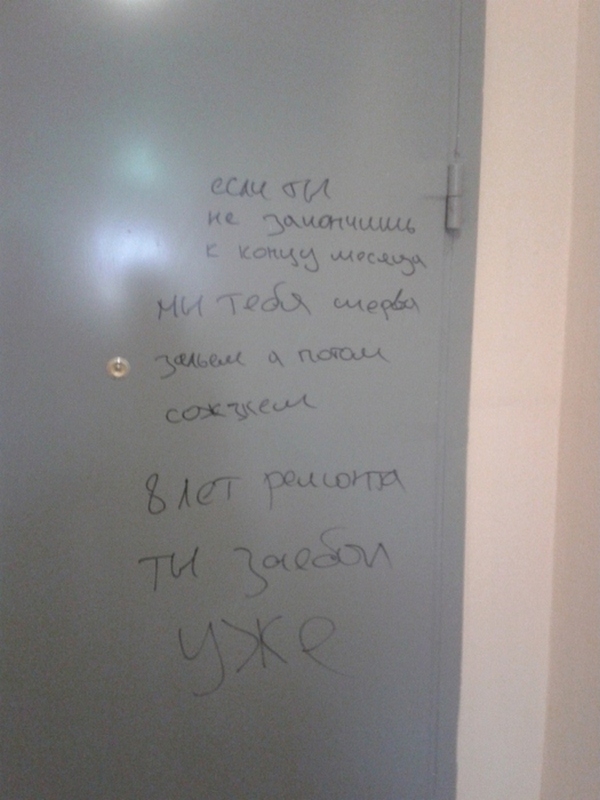 если ты
не закончишь
к концу месяца
мы тебя шерва
зальем а потом
сожжем
8 лет ремонта
ты заебал
уже